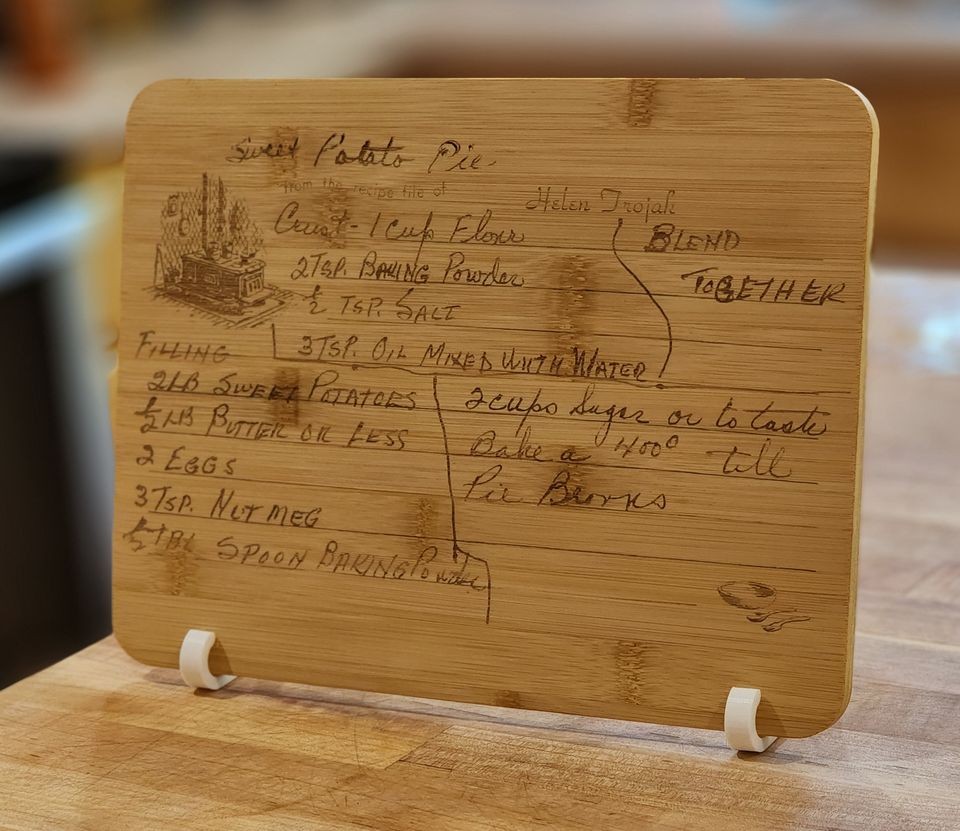 Sweet Potato Pie
from the recipe file of Helen Trojak
Crust - 1 cup Flour
2 TSP. BAKING Powder
½ TSP. SALT
3 TSP. OIL MIXED WITH WATER
BLEND
TOGETHER
FILLING
2 LB SWEET POTATOES
½ LB BUTTER OR LESS
2 EGGS
3 TSP. NUTMEG
½ TBL SPOON BAKING Powder
2 cups Sugar or to taste
Bake a 400° till
Pie Browns